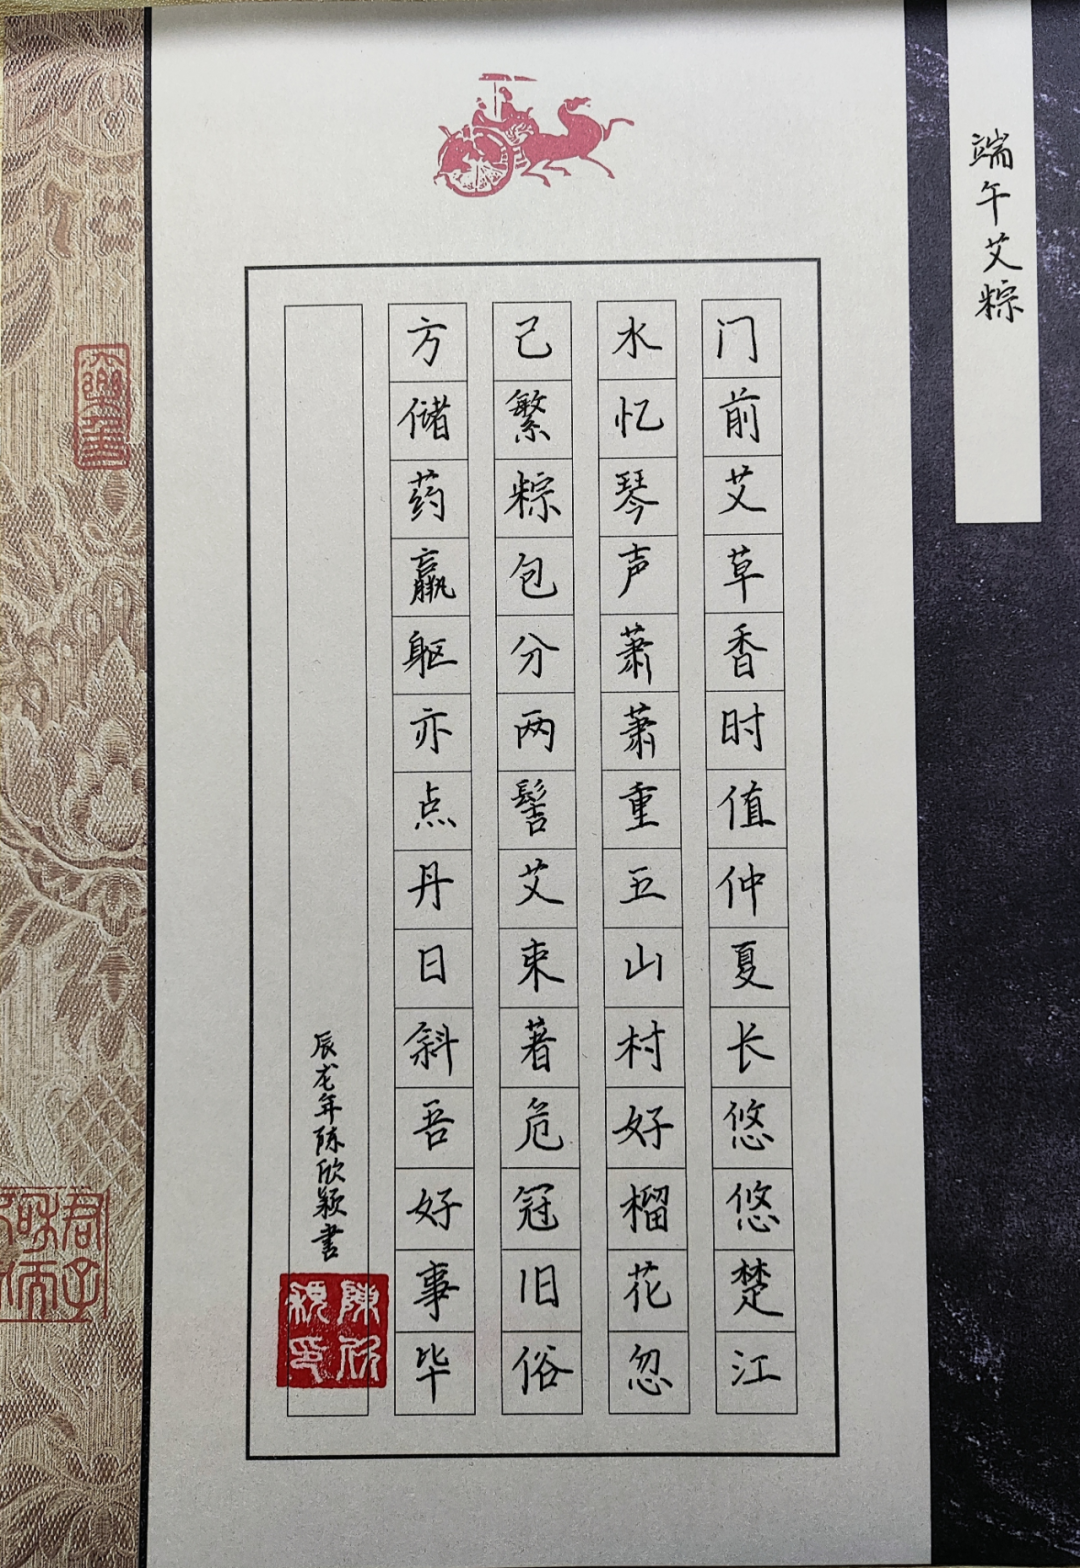 端午艾粽
门前艾草香时值仲夏长悠悠楚江
水忆琴声萧萧重五山村好榴花忽
己繁粽包分两髻艾束著危冠旧俗
方储药羸躯亦点丹日斜吾好事毕
辰龙年陈欣颖书
陈欣颖印